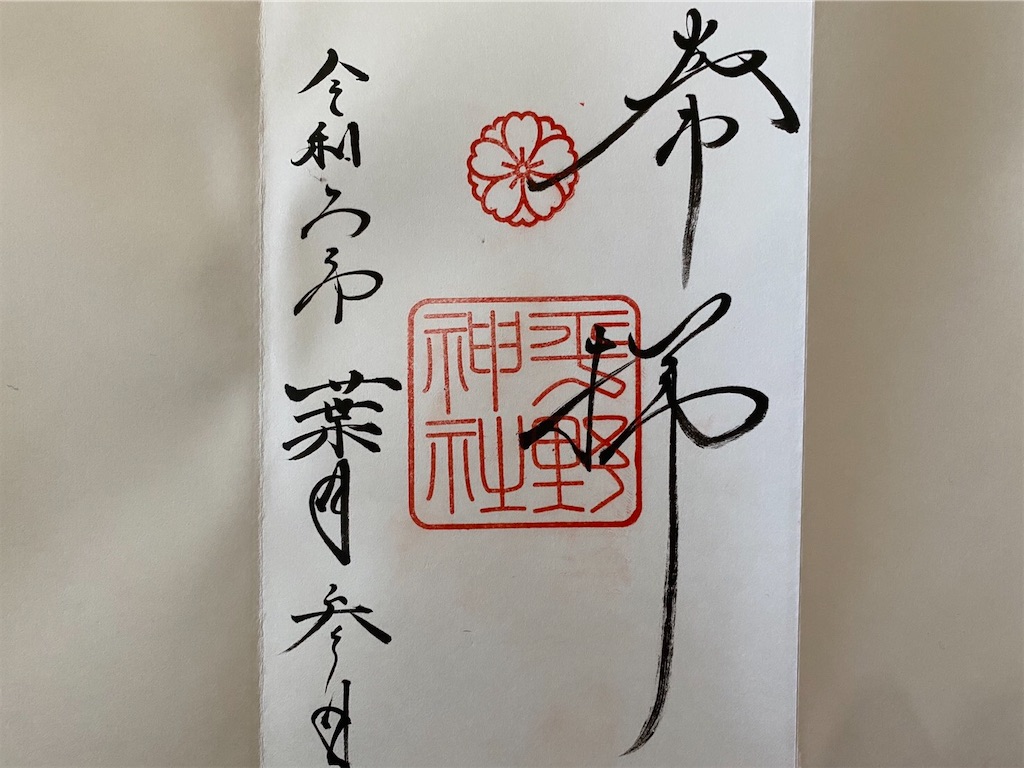 奉拝
平野
神社
令和六年葉月参日